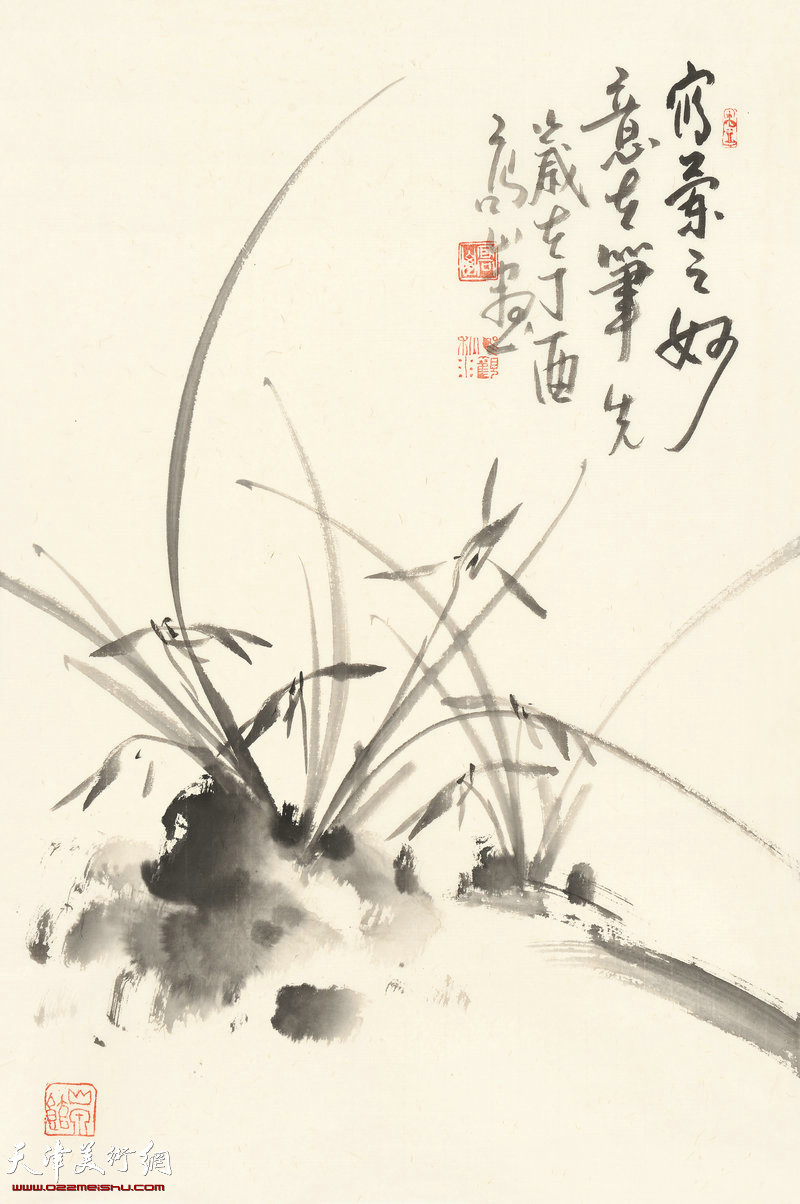 寫蘭之妙
意在筆先
歲在丁酉
畫
天津美術網
www.022meishu.com